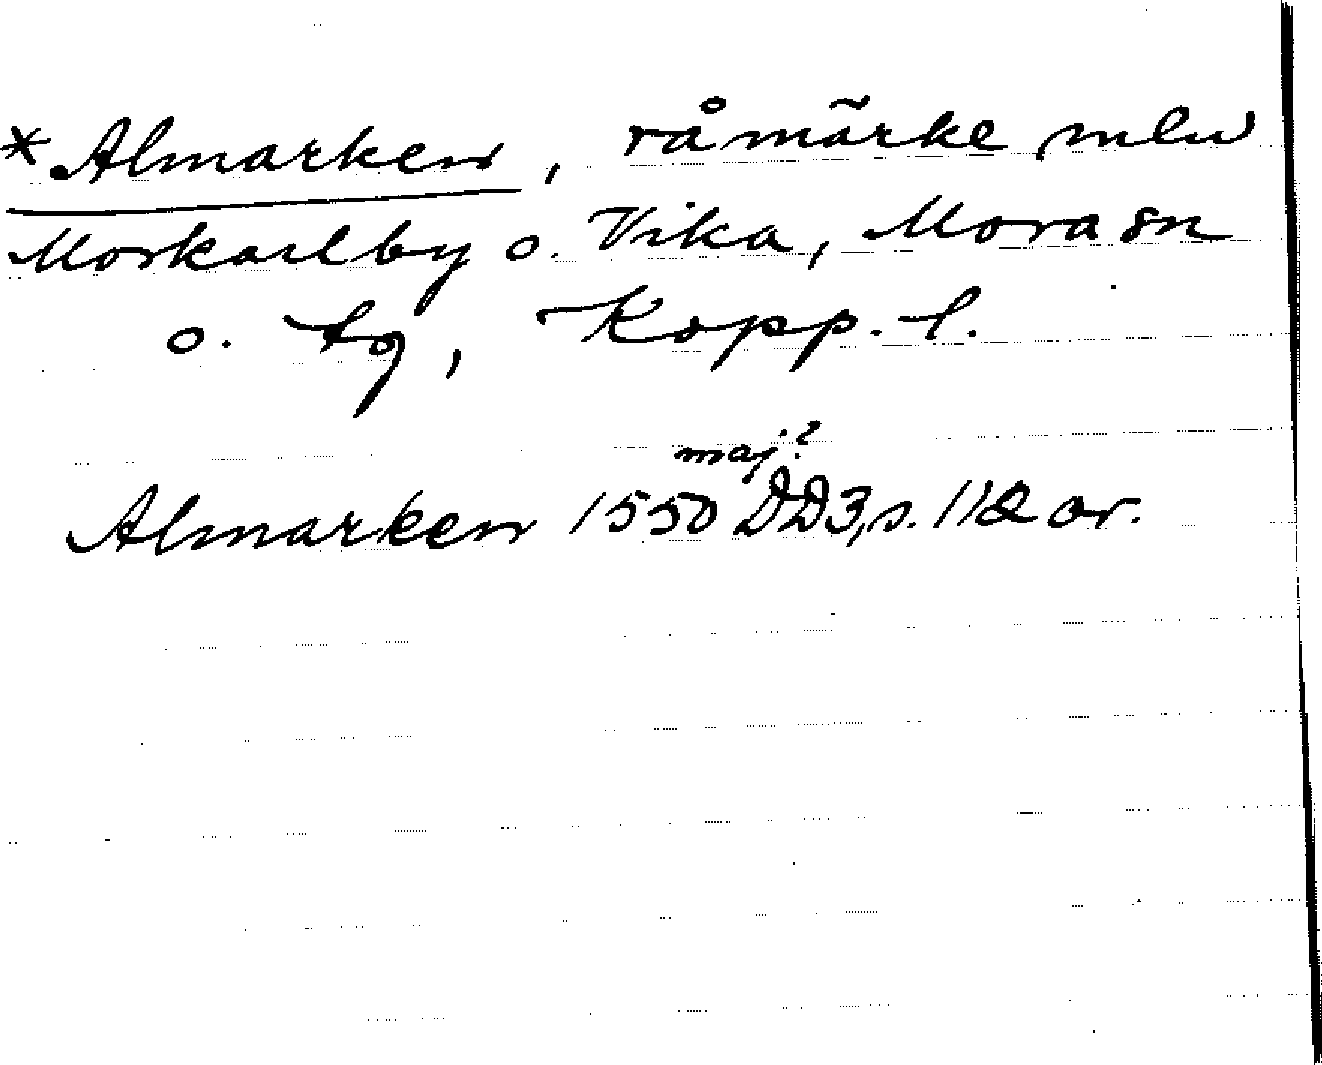 *Almarken, råmärke mlu
Morkarlby o. Vika, Mora sn
o. tg, Kopp. l.
maj?
Almarken 1550 DD3, s. 112 or.